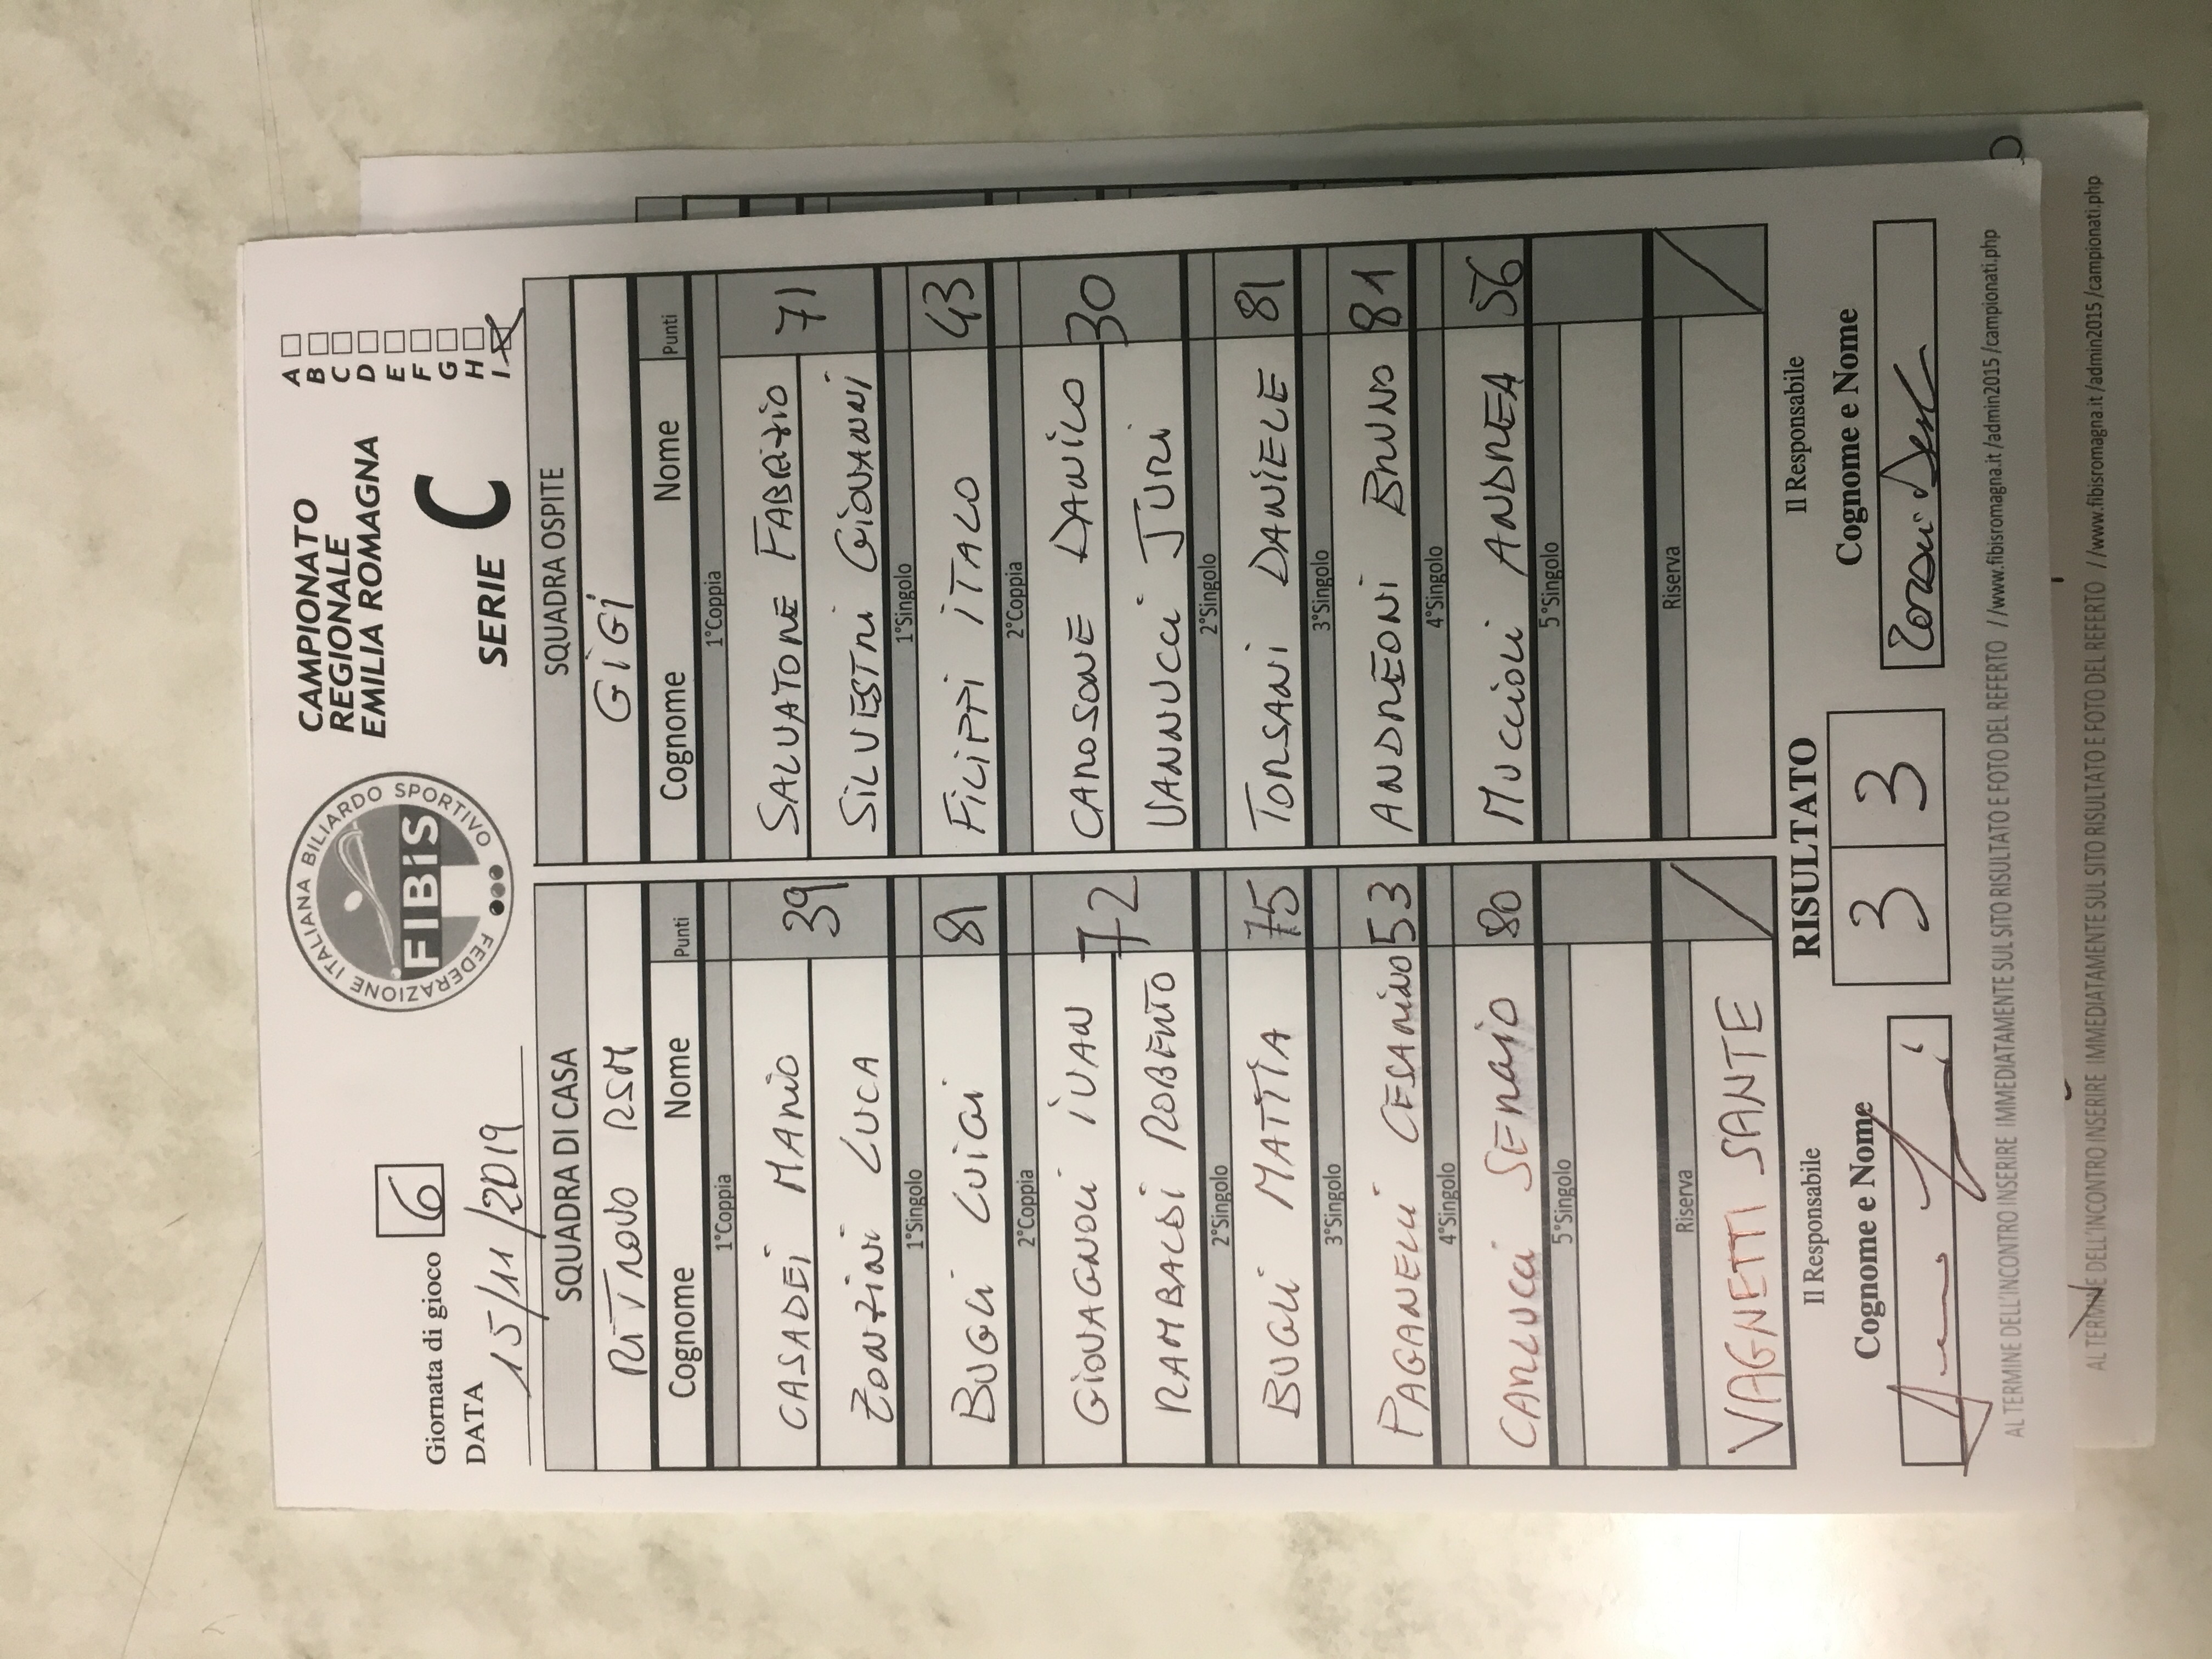 Giornata di gioco 6
DATA 15/11/2019
FEDERAZIONE ITALIANA BILIARDO SPORTIVO
FIBiS
CAMPIONATO
REGIONALE
EMILIA ROMAGNA
SERIE C
A
B
C
D
E
F
G
H
I X
SQUADRA DI CASA SQUADRA OSPITE
RITROVO RSM GIGI
Cognome Nome Punti Cognome Nome Punti
1°Coppia 1°Coppia
CASADEI MARIO 39 SALVATORE FABRIZIO 71
ZONZINI LUCA SILVESTRI GIOVANNI
1°Singolo 1°Singolo
BUGLI LUIGI 81 FILIPPI ITALO 43
2°Coppia 2°Coppia
GIOVAGNOLI IVAN 72 CAROSONE DANILO 30
RAMBALDI ROBERTO VANNUCCI JURI
2°Singolo 2°Singolo
BUGLI MATTIA 75 TORSANI DANIELE 81
3°Singolo 3°Singolo
PAGANELLI CESARINO 53 ANDREONI BRUNO 81
4°Singolo 4°Singolo
CARLUCCI SERGIO 80 MUCCIOLI ANDREA 56
5°Singolo 5°Singolo
Riserva Riserva
VAGNETTI SANTE / /
Il Responsabile RISULTATO Il Responsabile
Cognome e Nome 3 3 Cognome e Nome
AL TERMINE DELL'INCONTRO INSERIRE IMMEDIATAMENTE SUL SITO RISULTATO E FOTO DEL REFERTO //www.fibisromagna.it /admin2015 /campionati.php
AL TERMINE DELL'INCONTRO INSERIRE IMMEDIATAMENTE SUL SITO RISULTATO E FOTO DEL REFERTO //www.fibisromagna.it /admin2015 /campionati.php